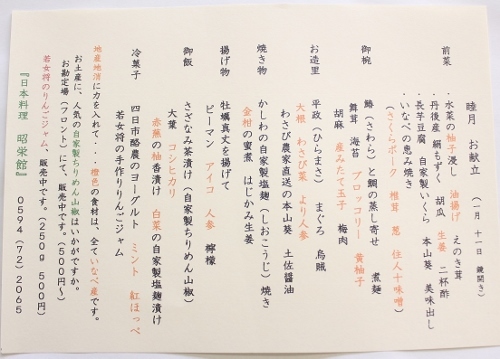 睦月　お献立　（一月　十一日　鏡開き）
前菜　・水菜の柚子浸し　油揚げ　えのき茸
・丹後産　絹もずく　胡瓜　生姜　二杯酢
・長芋豆腐　自家製いくら　本山葵　美味出し
・いなべの恵み焼き
（さくらポーク　椎茸　葱　住人十味噌）
御椀　鰆（さわら）と鯛の蒸し寄せ　煮麺
舞茸　海苔　ブロッコリー　黄柚子
胡麻　産みたて玉子　梅肉
お造里　平政（ひらまさ）　まぐろ　烏賊
大根　わさび菜　より人参
わさび農家直送の本山葵　土佐醤油
焼き物　かしわの自家製塩麹（しおこうじ）焼き
金柑の蜜煮　はじかみ生姜
揚げ物　牡蠣真丈を揚げて
ピーマン　アイコ　人参　檸檬
御飯　さざなみ茶漬け（自家製ちりめん山椒）
大葉　コシヒカリ
赤蕪の柚香漬け　白菜の自家製塩麹漬け
冷菓子　四日市酪農のヨーグルト　ミント　紅ほっぺ
若女将の手作りりんごジャム
地産地消に力を入れて・・・橙色の食材は、全ていなべ産です。
お土産に、人気の自家製ちりめん山椒はいかがですか。
お勘定場（フロント）にて、販売中です。（500円～）
若女将のりんごジャム、販売中です。（250g　500円）
『日本料理　昭栄館』　0594（72）2065